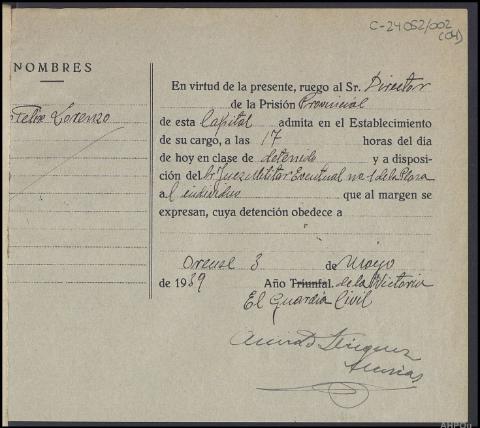 C-24052/002
(04)
NOMBRES
Felix Lorenzo
En virtud de la presente, ruego al Sr. Director
de la Prisión Provincial
de esta Capital admita en el Establecimiento
de su cargo, a las 17 horas del día
de hoy en clase de detenido y a disposi-
ción del Sr. Juez Militar Eventual nº 1 de la Plaza
al individuo que al margen se
expresan, cuya detención obedece a
Orense 3 de Mayo
de 1939 Año Triunfal. de la Victoria
El Guardia Civil
AHPOu